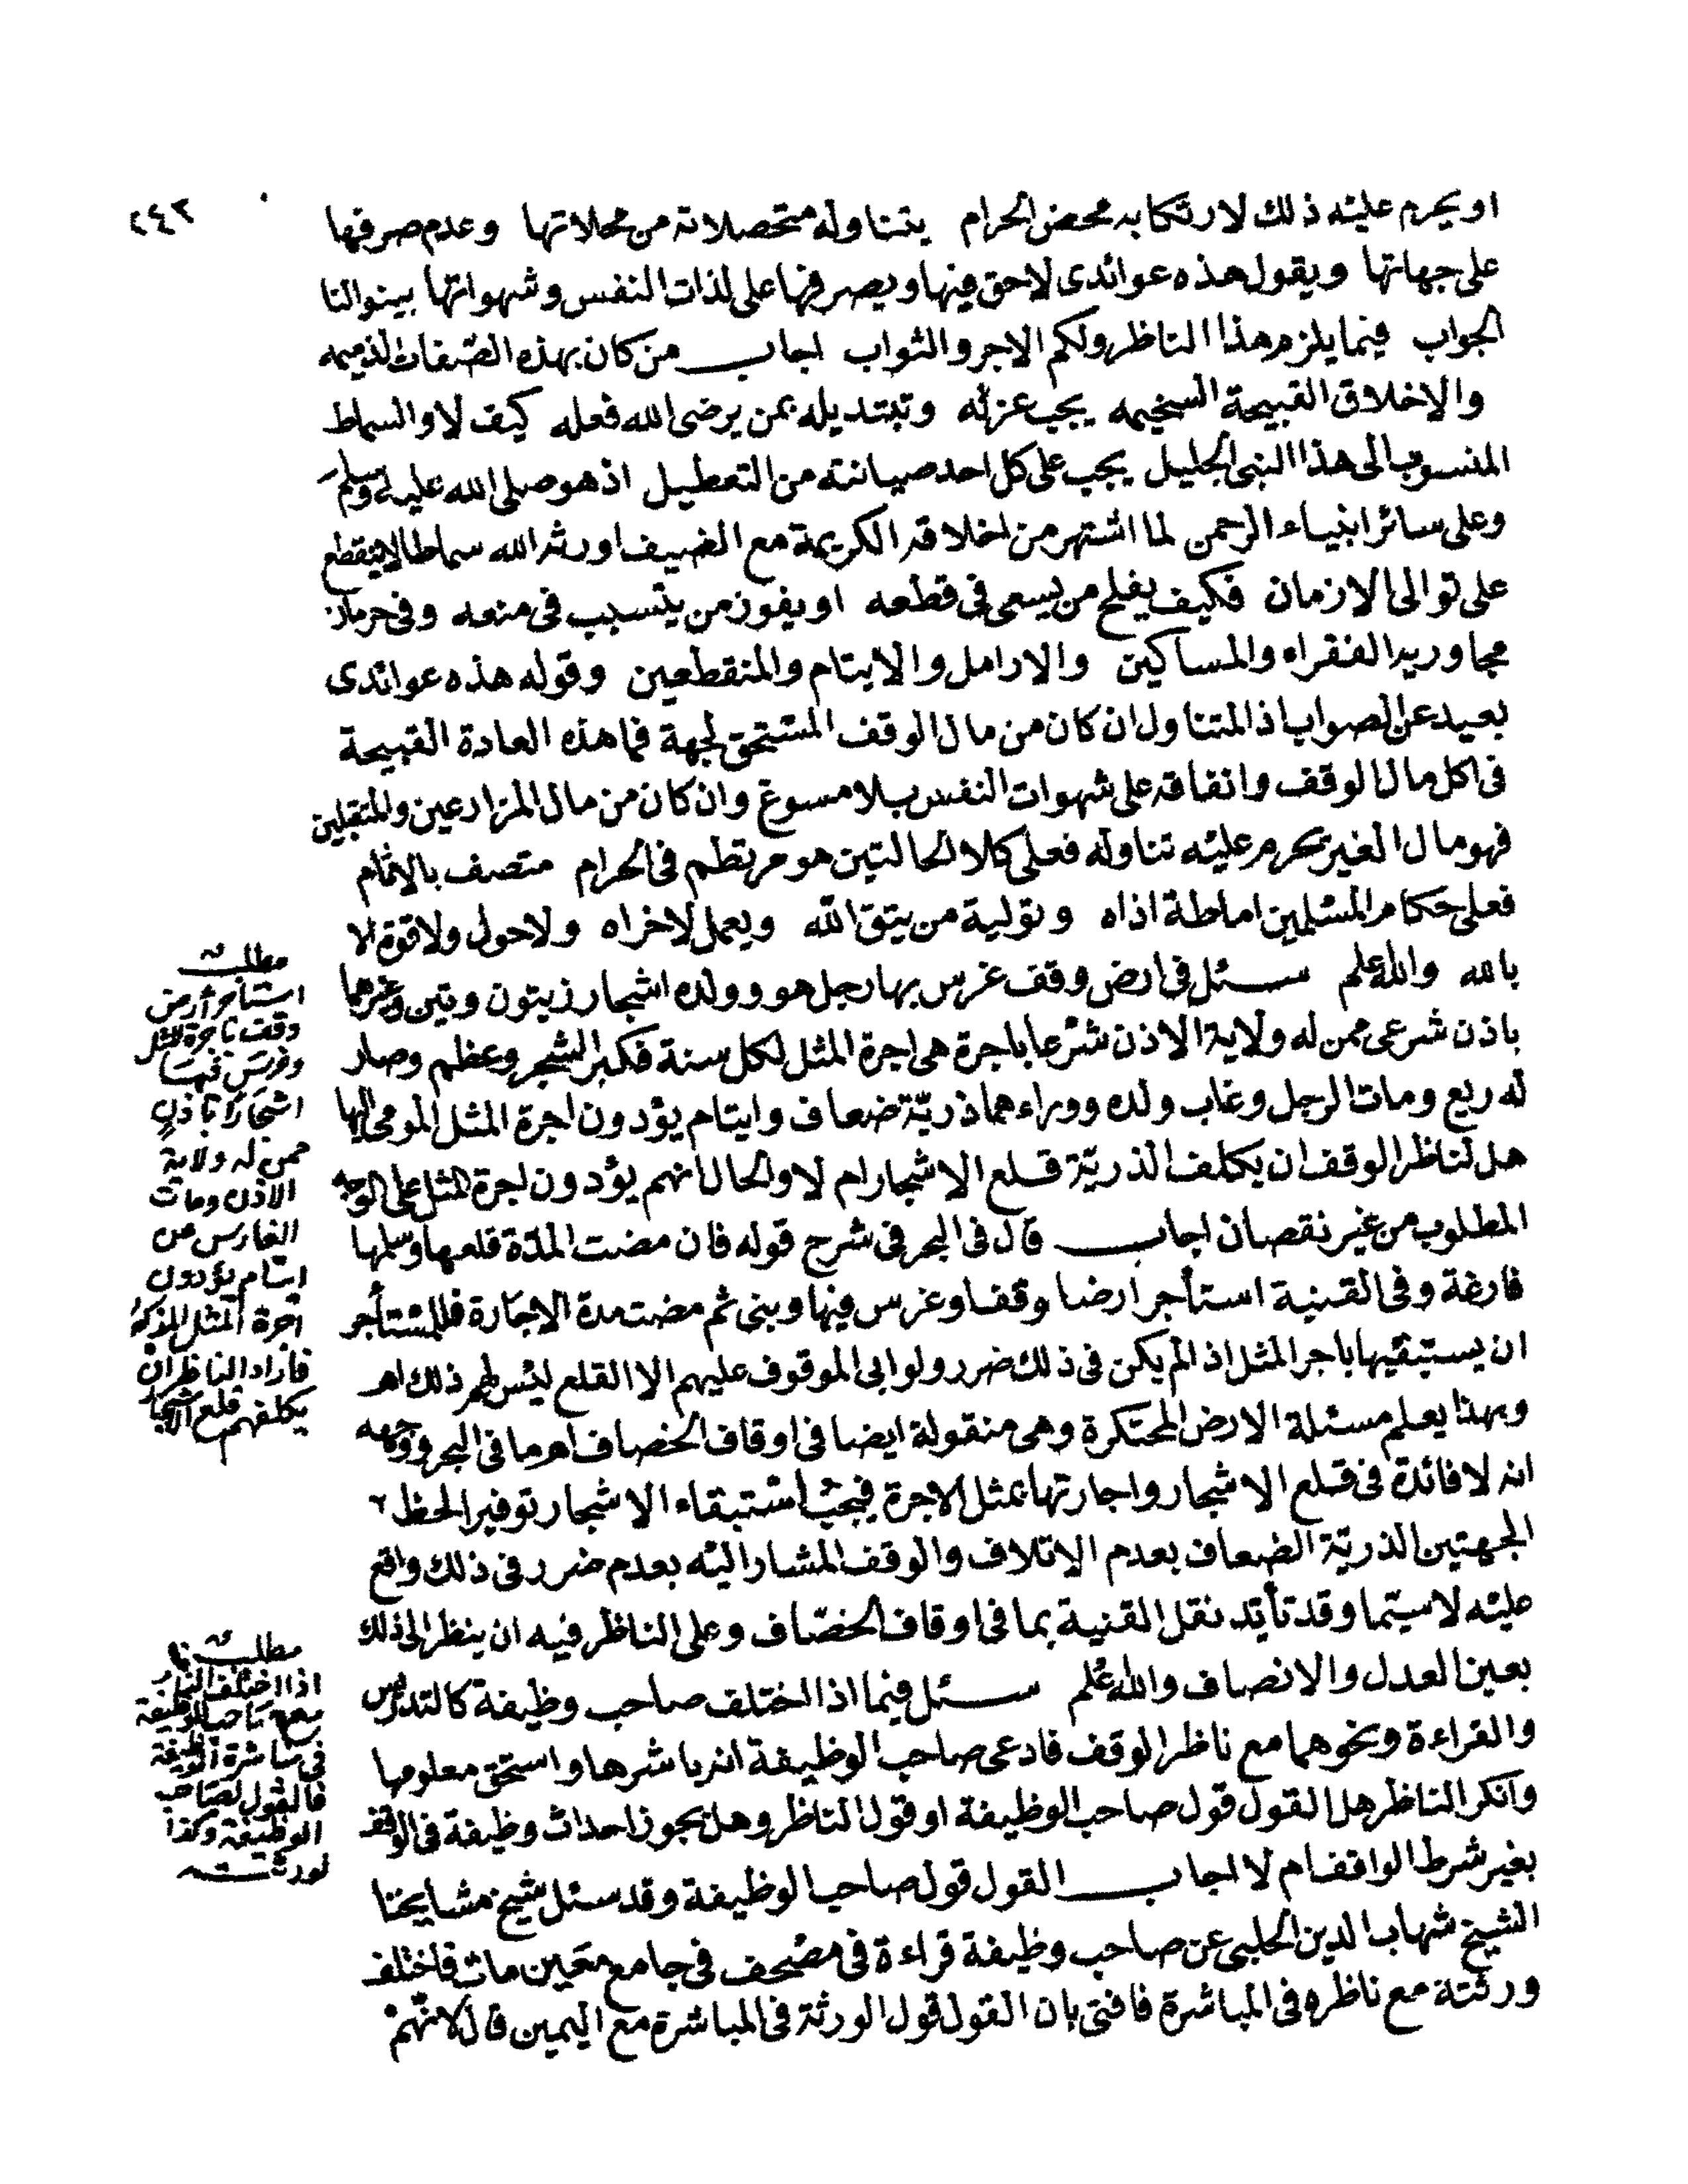 ٢٤٣
او يحرم عليه ذلك لارتكابه محض الحرام يتناوله متحصلاته من محلاتها وعدم صرفها
على جهاتها ويقول هذه عوائدى لاحق فيها ويصرفها على لذات النفس وشهواتها بينوا لنا
الجواب فيما يلزم هذا الناظر ولكم الاجر والثواب اجاب من كان بهذه الصفات الذميمه
والاخلاق القبيحة السخيمه يجب عزله وتبتديله بمن يرضى الله فعله كيف لا والسماط
المنسوب الى هذا النبى الجليل يجب على كل احد صيانته من التعطيل اذ هو صلى الله عليه وسلم
وعلى سائر انبياء الرحمن لما اشتهر من اخلاقه الكريمة مع الضيف اورثه الله سماطا لا ينقطع
على توالى الازمان فكيف يفلح من يسعى فى قطعه او يفوز من يتسبب فى منعه وفى حرمان
مجاوريه الفقراء والمساكين والارامل والايتام والمنقطعين وقوله هذه عوائدى
بعيد عن الصواب اذ المتناول ان كان من مال الوقف المستحق لجهة فما هذه العادة القبيحة
فى اكل مال الوقف وانفاقه على شهوات النفس بلا مسوغ وان كان من مال المزارعين والمتقبلين
فهو مال الغير يحرم عليه تناوله فعلى كلا الحالتين هو مرتطم فى الحرام متصف بالاثام
فعلى حكام المسلمين اماطة اذاه وتولية من يتق الله ويعمل لاخراه ولا حول ولا قوة الا
بالله والله اعلم سئل فى ارض وقف غرس بها رجل هو وولده اشجار زيتون وتين وغيرهما
باذن شرعى ممن له ولاية الاذن شرعا باجرة هى اجرة المثل لكل سنة فكبر الشجر وعظم وصار
له ريع ومات الرجل وغاب ولده ووراءهما ذرية ضعاف وايتام يؤدون اجرة المثل المومى اليها
هل لناظر الوقف ان يكلف الذرية قلع الاشجار ام لا والحال انهم يؤدون اجرة المثل على الوجه
المطلوب من غير نقصان اجاب قال فى البحر فى شرح قوله فان مضت المدة قلعها وسلمها
فارغة وفى القنية استأجر ارضا وقفا وغرس فيها وبنى ثم مضت مدة الاجارة فللمستأجر
ان يستبقيها باجر المثل اذا لم يكن فى ذلك ضرر ولو ابى الموقوف عليهم الا القلع ليس لهم ذلك اهـ
وبهذا يعلم مسئلة الارض المحتكرة وهى منقولة ايضا فى اوقاف الخصاف اهـ ما فى البحر ووجهه
انه لا فائدة فى قلع الاشجار واجارتها بمثل الاجرة فيجب استبقاء الاشجار توفيرا لحظ
الجهتين الذرية الضعاف بعدم الاتلاف والوقف المشار اليه بعدم ضرر فى ذلك واقع
عليه لاسيما وقد تأيد نقل القنية بما فى اوقاف الخصاف وعلى الناظر فيه ان ينظر الى ذلك
بعين العدل والانصاف والله اعلم سئل فيما اذا اختلف صاحب وظيفة كالتدريس
والقراءة ونحوهما مع ناظر الوقف فادعى صاحب الوظيفة انه باشرها واستحق معلومها
وانكر الناظر هل القول قول صاحب الوظيفة او قول الناظر وهل يجوز احداث وظيفة فى الوقف
بغير شرط الواقف ام لا اجاب القول قول صاحب الوظيفة وقد سئل شيخ مشايخنا
الشيخ شهاب الدين الحلبى عن صاحب وظيفة قراءة فى مصحف فى جامع معين مات فاختلف
ورثته مع ناظره فى المباشرة فافتى بان القول قول الورثة فى المباشرة مع اليمين قال لانهم
مطلب
استأجر أرض
وقف باجرة المثل
وغرس فيها
اشجارا باذن
ممن له ولاية
الاذن ومات
الغارس عن
ايتام يؤدون
اجرة المثل المذكور
فاراد الناظر ان
يكلفهم قلع الاشجار
مطلب
اذا اختلف الناظر
مع صاحب الوظيفة
فى مباشرة الوظيفة
فالقول لصاحب
الوظيفة وكذا
لورثته